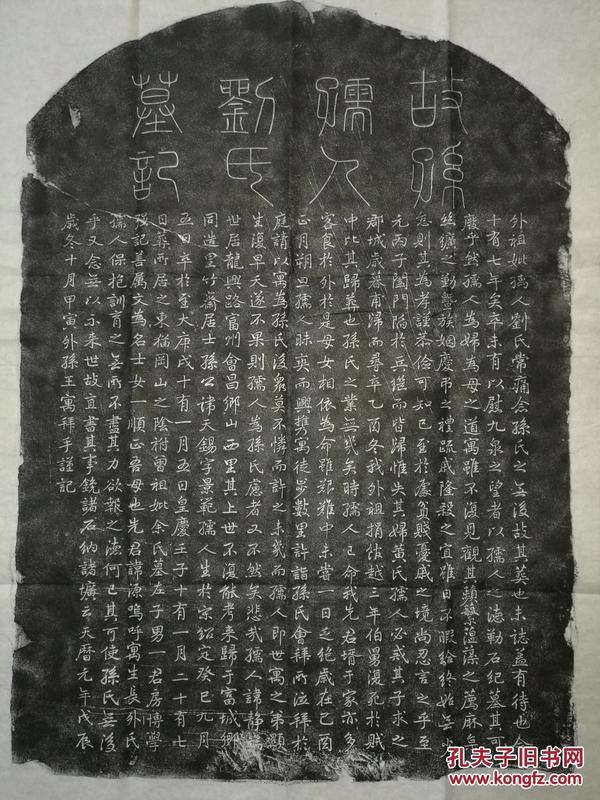 故孫
孺人
劉氏
墓記
外祖妣孺人劉氏常痛念孫氏之無後故其葬也未誌蓋有待也今
十有七年矣卒未有以慰九泉之望者以孺人之德勒石紀墓其可
廢乎然孺人為婦為母之道寓雖不復見觀其蘋蘩薀藻之薦麻枲
絲纊之勤暨族姻慶弔之禮疏戚隆殺之宜雖日不暇給終始無少
怠則其為孝謹恭儉可知已至於處貧賤憂戚之境尚忍言之乎至
元丙子闔門陷於兵繼而皆歸惟失其婦黃氏孺人必戒其子求之
郡城歲暮甫歸而尋卒乙酉冬我外祖捐館越三年伯舅復死於賊
中比其歸葬也孫氏之業無幾矣時孺人已命我先君壻于家亦多
客食於外於是母女相依為命雖艱難中未嘗一日之絕戚在己酉
正月朔旦孺人昧爽而興攜寓徒步數里許詣孫氏會拜所泣拜於
庭請以寓為孫氏後眾莫不憐而許之未幾而孺人即世寓之弟顯
生復早夭遂不果則孺人為孫氏慮者又不然矣悲哉孺人諱靜端
世居龍興路富州會昌鄉山西里其上世不復能考來歸于富城鄉
同造里竹齋居士孫公諱天錫字景範孺人生於宋紹定癸巳九月
五日卒於至大庚戌十有一月五日皇慶壬子十有一月二十有七
日葬所居之東貓岡山之陰祔曾祖妣余氏墓左子男一君房博學
強記善屬文為名士女一順正吾母也先君諱源嗚呼寓生長外氏
孺人保抱訓育之無所不盡其力欲報之德何已其可使孫氏無後
乎又念無以示來世故宜書其事鐫諸石納諸壙云天曆元年戊辰
歲冬十月甲寅外孫王寓拜手謹記
孔夫子旧书网
www.kongfz.com